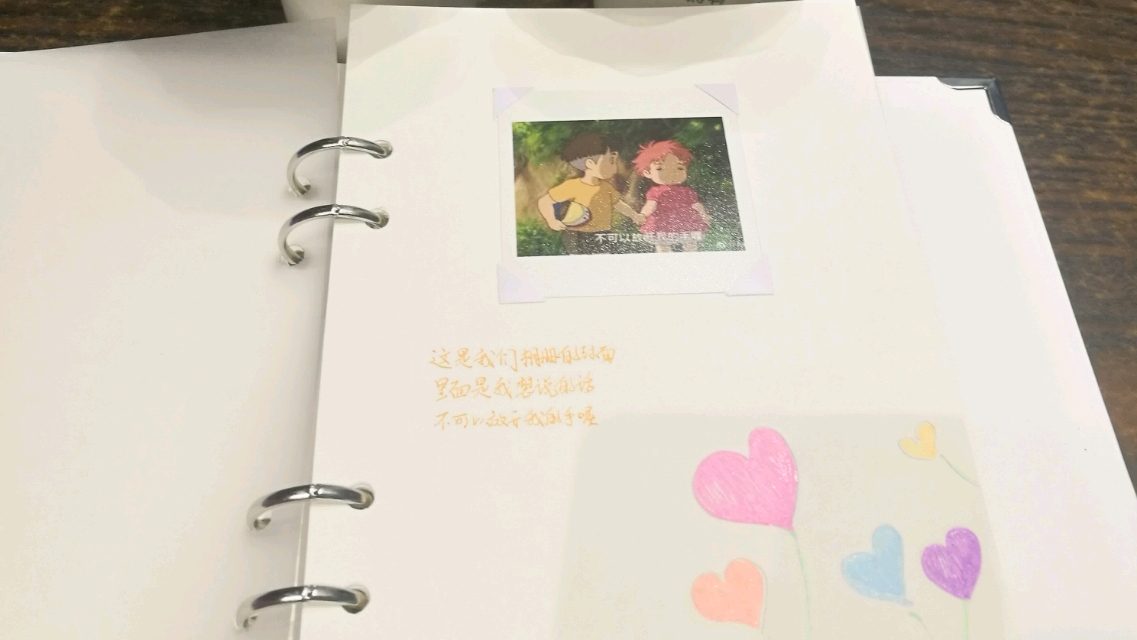 不可以放开我的手喔
这是我们相册的封面
里面是我想说的话
不可以放开我的手喔